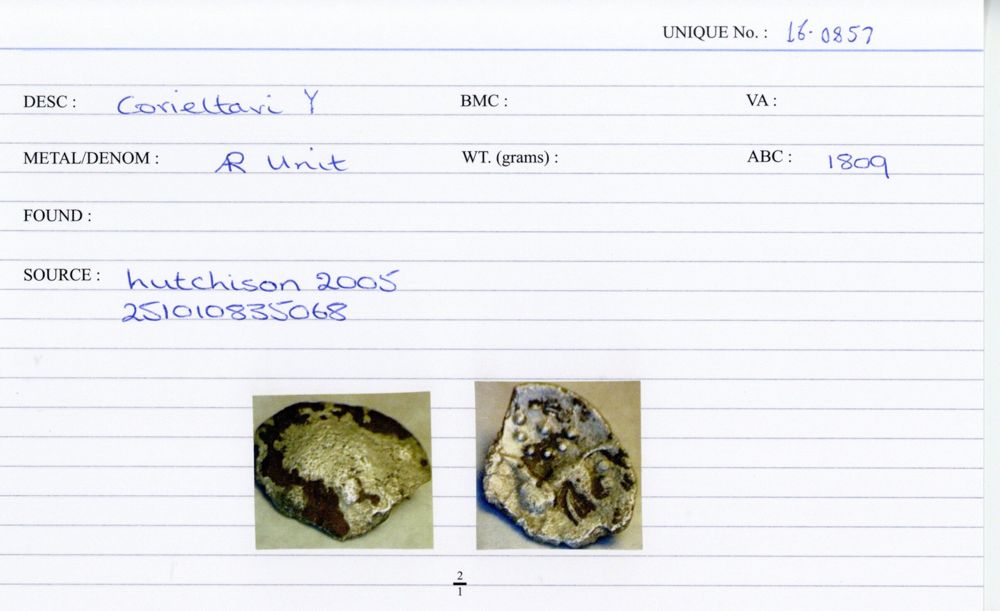 UNIQUE No. : 16-0857
DESC : Corieltavi Y BMC : VA :
METAL/DENOM : AR Unit WT. (grams) : ABC : 1809
FOUND :
SOURCE : hutchison 2005
251010835068
2
1